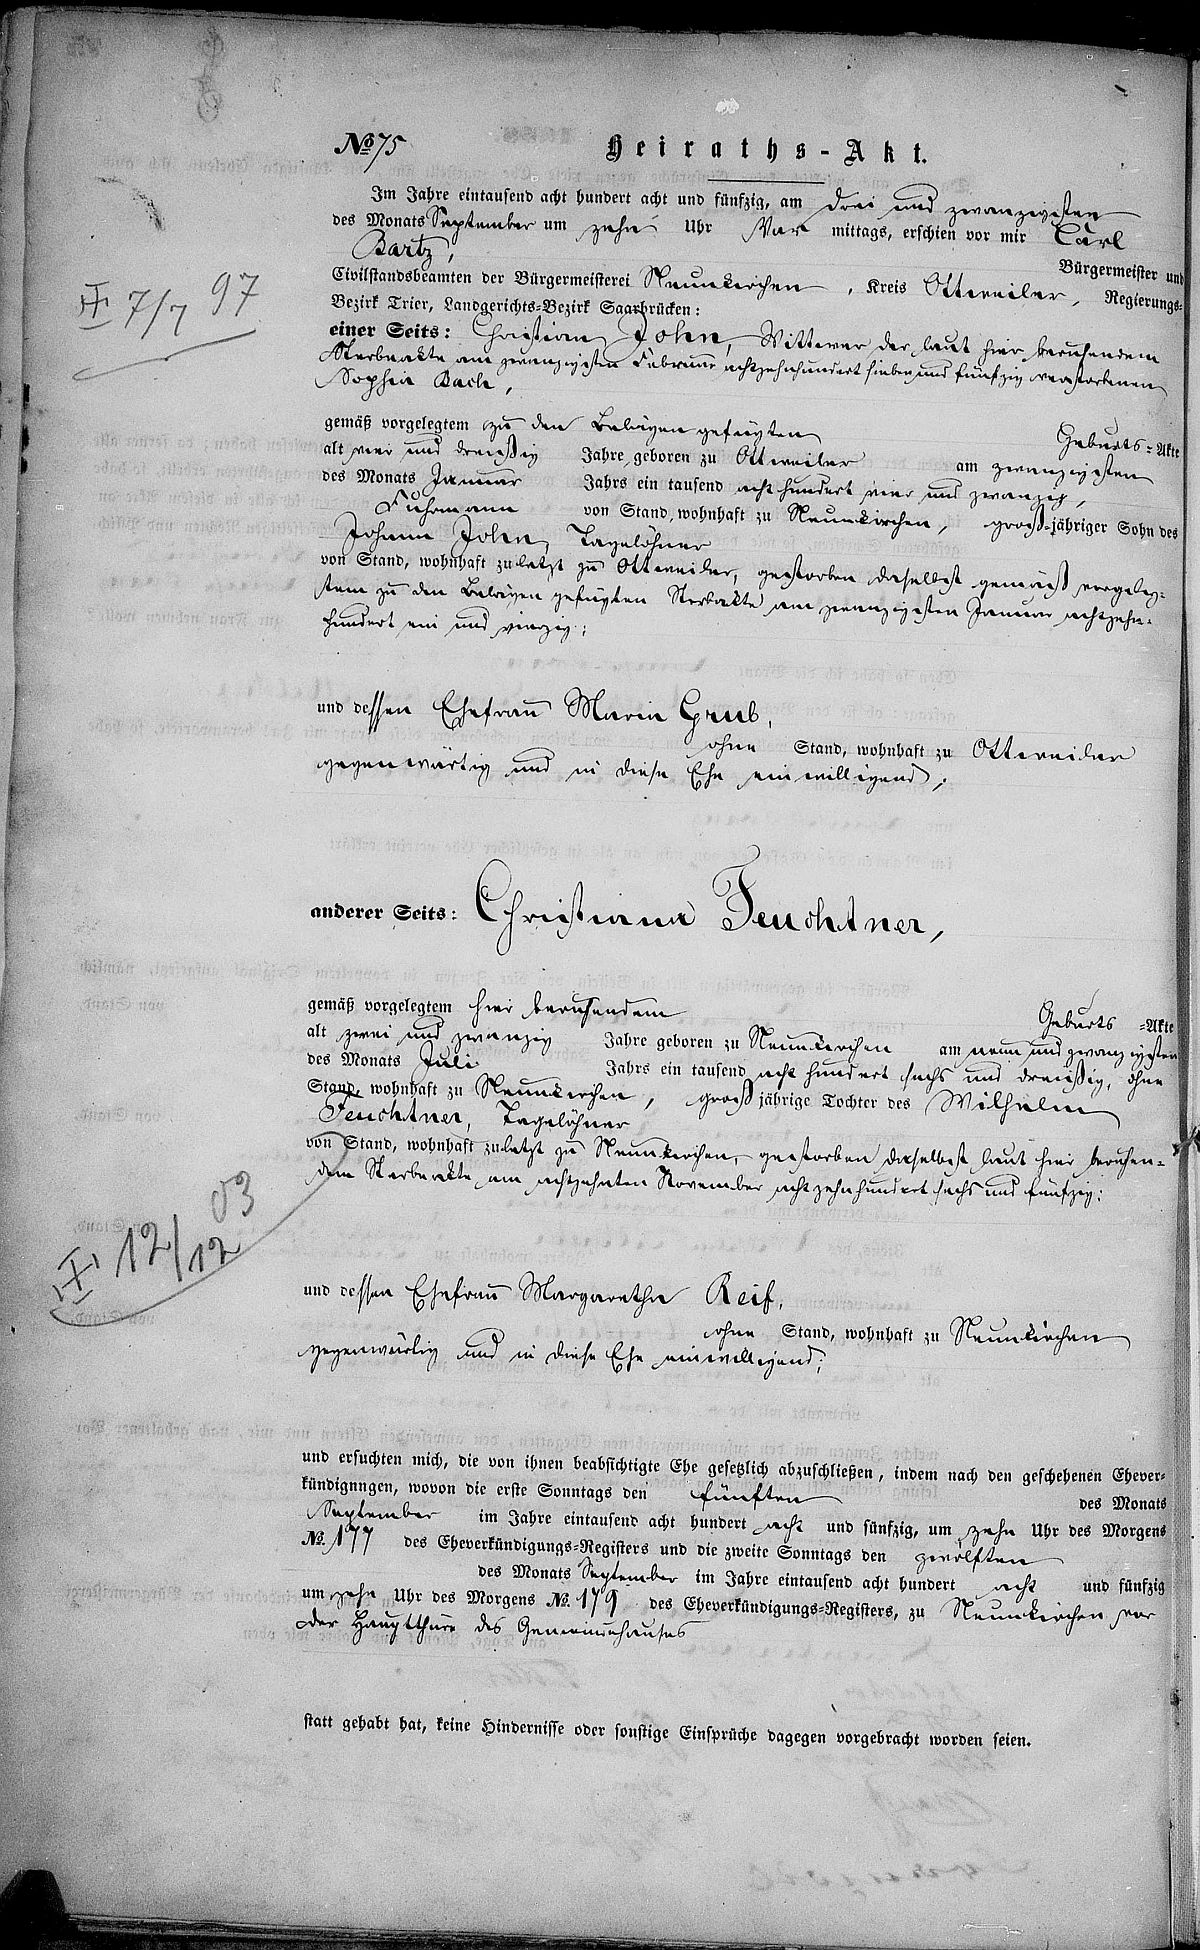 No 75 Heiraths-Akt.
Im Jahre eintausend acht hundert acht und fünfzig, am drei und zwanzigsten
des Monats September um zehn Uhr Vor mittags, erschien vor mir Carl
Bartz, Bürgermeister und
Civilstandsbeamten der Bürgermeisterei Neunkirchen, Kreis Ottweiler, Regierungs-
Bezirk Trier, Landgerichts-Bezirk Saarbrücken:
⌶ 7/7 97
einer Seits: Christian John, Wittwer der laut hier beruhendem
Sterbeakte am zwanzigsten Februar achtzehnhundert sieben und fünfzig verstorbenen
Sophia Bach,
gemäß vorgelegtem zu den Belägen gefügten Geburts-Akte
alt vier und dreißig Jahre, geboren zu Ottweiler am zwanzigsten
des Monats Januar Jahrs ein tausend acht hundert vier und zwanzig,
Fuhrmann von Stand, wohnhaft zu Neunkirchen, groß-jähriger Sohn des
Johann John, Tagelöhner
von Stand, wohnhaft zuletzt zu Ottweiler, gestorben daselbst gemäß vorgeleg-
tem zu den Belägen gefügten Sterbakte am zwanzigsten Januar achtzehn-
hundert ein und vierzig;
und dessen Ehefrau Maria Grub,
ohne Stand, wohnhaft zu Ottweiler
gegenwärtig und in diese Ehe einwilligend;
anderer Seits: Christiana Feuchtner,
gemäß vorgelegtem hier beruhendem Geburts-Akte
alt zwei und zwanzig Jahre geboren zu Neunkirchen am neun und zwanzigsten
des Monats Juli Jahrs ein tausend acht hundert sechs und dreißig, ohne
Stand, wohnhaft zu Neunkirchen, groß jährige Tochter des Wilhelm
Feuchtner, Tagelöhner
von Stand, wohnhaft zuletzt zu Neunkirchen, gestorben daselbst laut hier beruhen-
dem Sterbeakte am achtzehnten November achtzehnhundert sechs und fünfzig;
12/12 03
und dessen Ehefrau Margaretha Reif,
ohne Stand, wohnhaft zu Neunkirchen
gegenwärtig und in diese Ehe einwilligend;
und ersuchten mich, die von ihnen beabsichtigte Ehe gesetzlich abzuschließen, indem nach den geschehenen Ehever-
kündignngen, wovon die erste Sonntags den fünften des Monats
September im Jahre eintausend acht hundert acht und fünfzig, um zehn Uhr des Morgens
No. 177 des Eheverkündigungs-Registers und die zweite Sonntags den zwölften
des Monats September im Jahre eintausend acht hundert acht und fünfzig
um zehn Uhr des Morgens No. 179 des Eheverkündigungs-Registers, zu Neunkirchen vor
der Hauptthüre des Gemeindehauses
statt gehabt hat, keine Hindernisse oder sonstige Einsprüche dagegen vorgebracht worden seien.